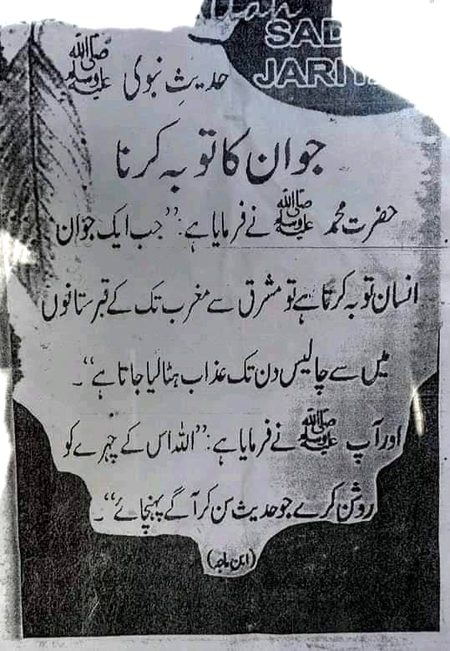 SAD
JARI
حدیثِ نبوی ﷺ
جوان کا توبہ کرنا
حضرت محمد ﷺ نے فرمایا ہے: ”جب ایک جوان
انسان توبہ کرتا ہے تو مشرق سے مغرب تک کے قبرستانوں
میں سے چالیس دن تک عذاب ہٹا لیا جاتا ہے“۔
اور آپ ﷺ نے فرمایا ہے: ”اللہ اس کے چہرے کو
روشن کرے جو حدیث سن کر آگے پہنچائے“۔
(ابن ماجہ)